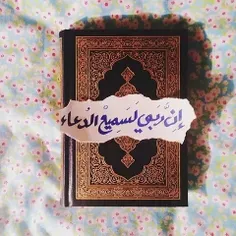 إنَّ رَبِي لَسَمِيعُ الدُعاء